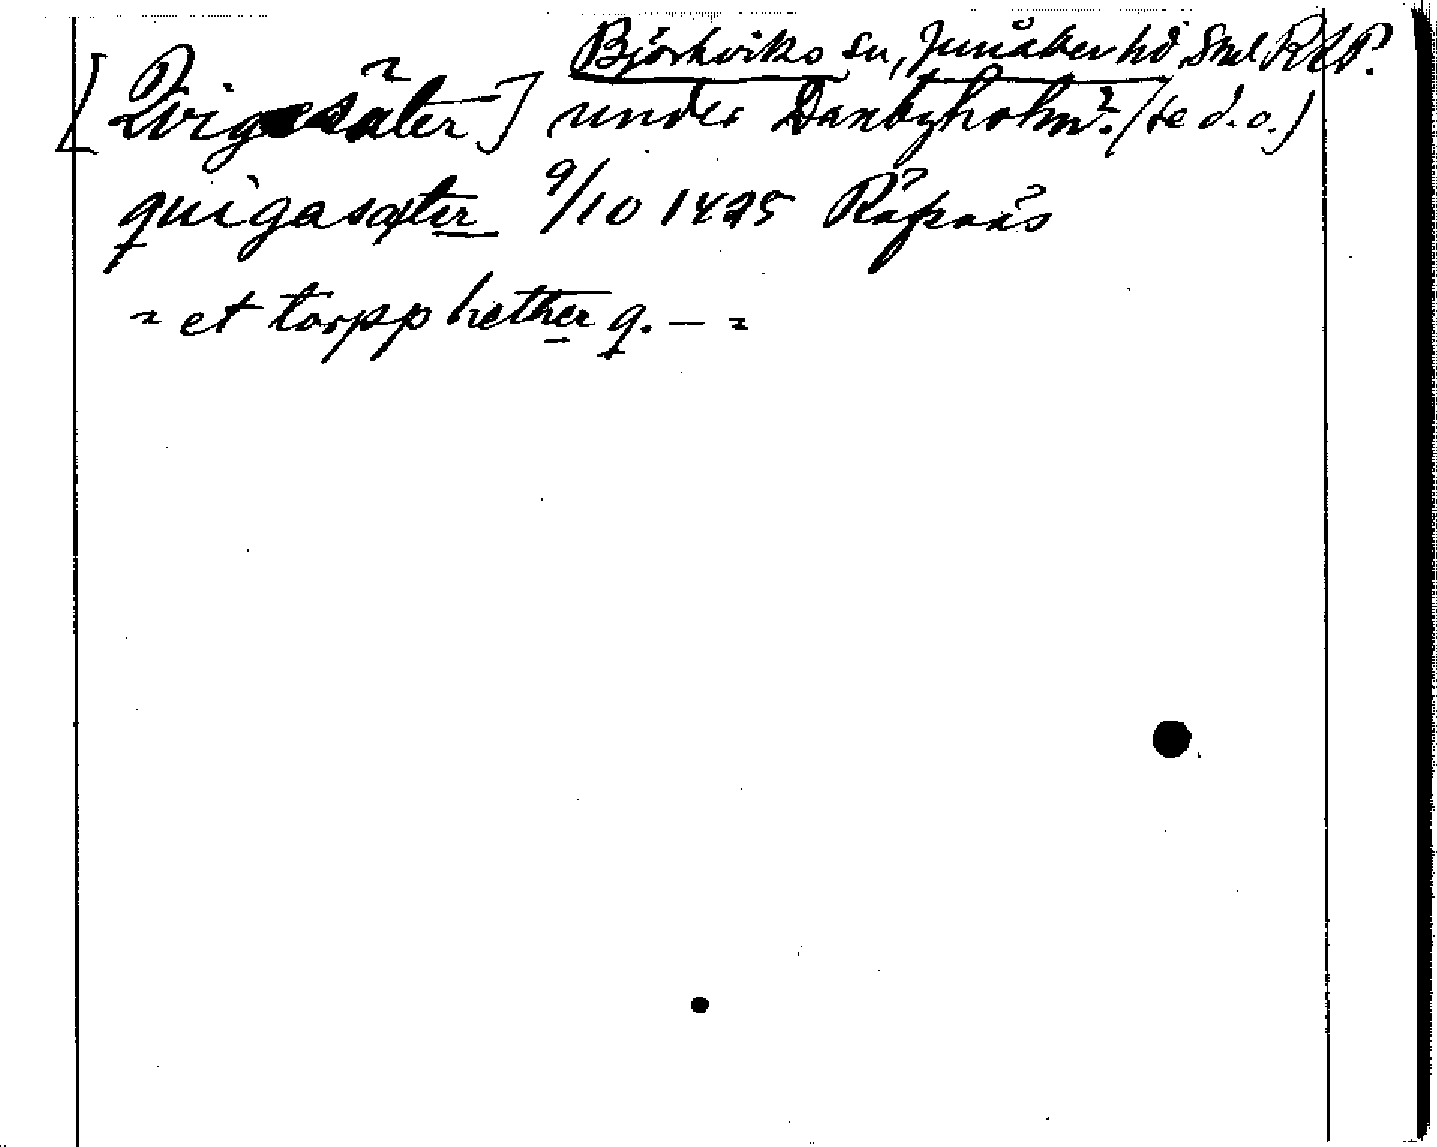 Björkviks sn, Jönåker hd Sml RAP.
[Qvigesäter] under Danbyholm?. (se d.o.)
quigasæter 9/10 1425 Räfsnäs
"et torpp hether q. — "